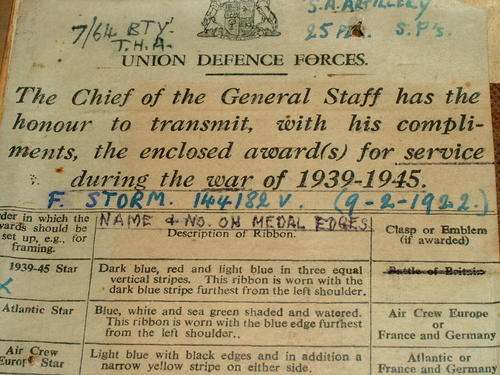 7/64 BTY. S.A. ARTILLERY
T.H.A. 25 PDR. S.P's.
UNION DEFENCE FORCES.
The Chief of the General Staff has the
honour to transmit, with his compli-
ments, the enclosed award(s) for service
during the war of 1939-1945.
F. STORM. 144182 V. (9-2-1922.)
NAME & NO. ON MEDAL EDGES
Order in which the
awards should be
set up, e.g., for
framing.
Description of Ribbon.
Clasp or Emblem
(if awarded)
1939-45 Star
Dark blue, red and light blue in three equal
vertical stripes. This ribbon is worn with the
dark blue stripe furthest from the left shoulder.
Battle of Britain
Atlantic Star
Blue, white and sea green shaded and watered.
This ribbon is worn with the blue edge furthest
from the left shoulder..
Air Crew Europe
or
France and Germany
Air Crew
Europe Star
Light blue with black edges and in addition a
narrow yellow stripe on either side.
Atlantic or
France and Germany